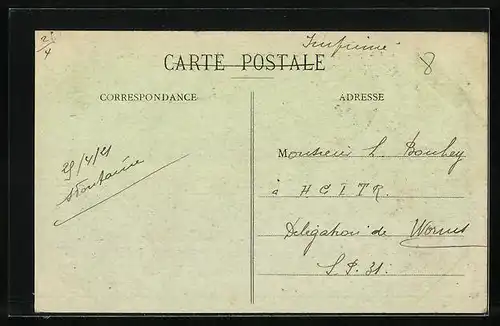 2/4
Imprimé
8
CARTE POSTALE
CORRESPONDANCE
ADRESSE
25/4/21
Monsieur L. Bouhey
à H C I T R.
Délégation de Worms
S. P. 31.